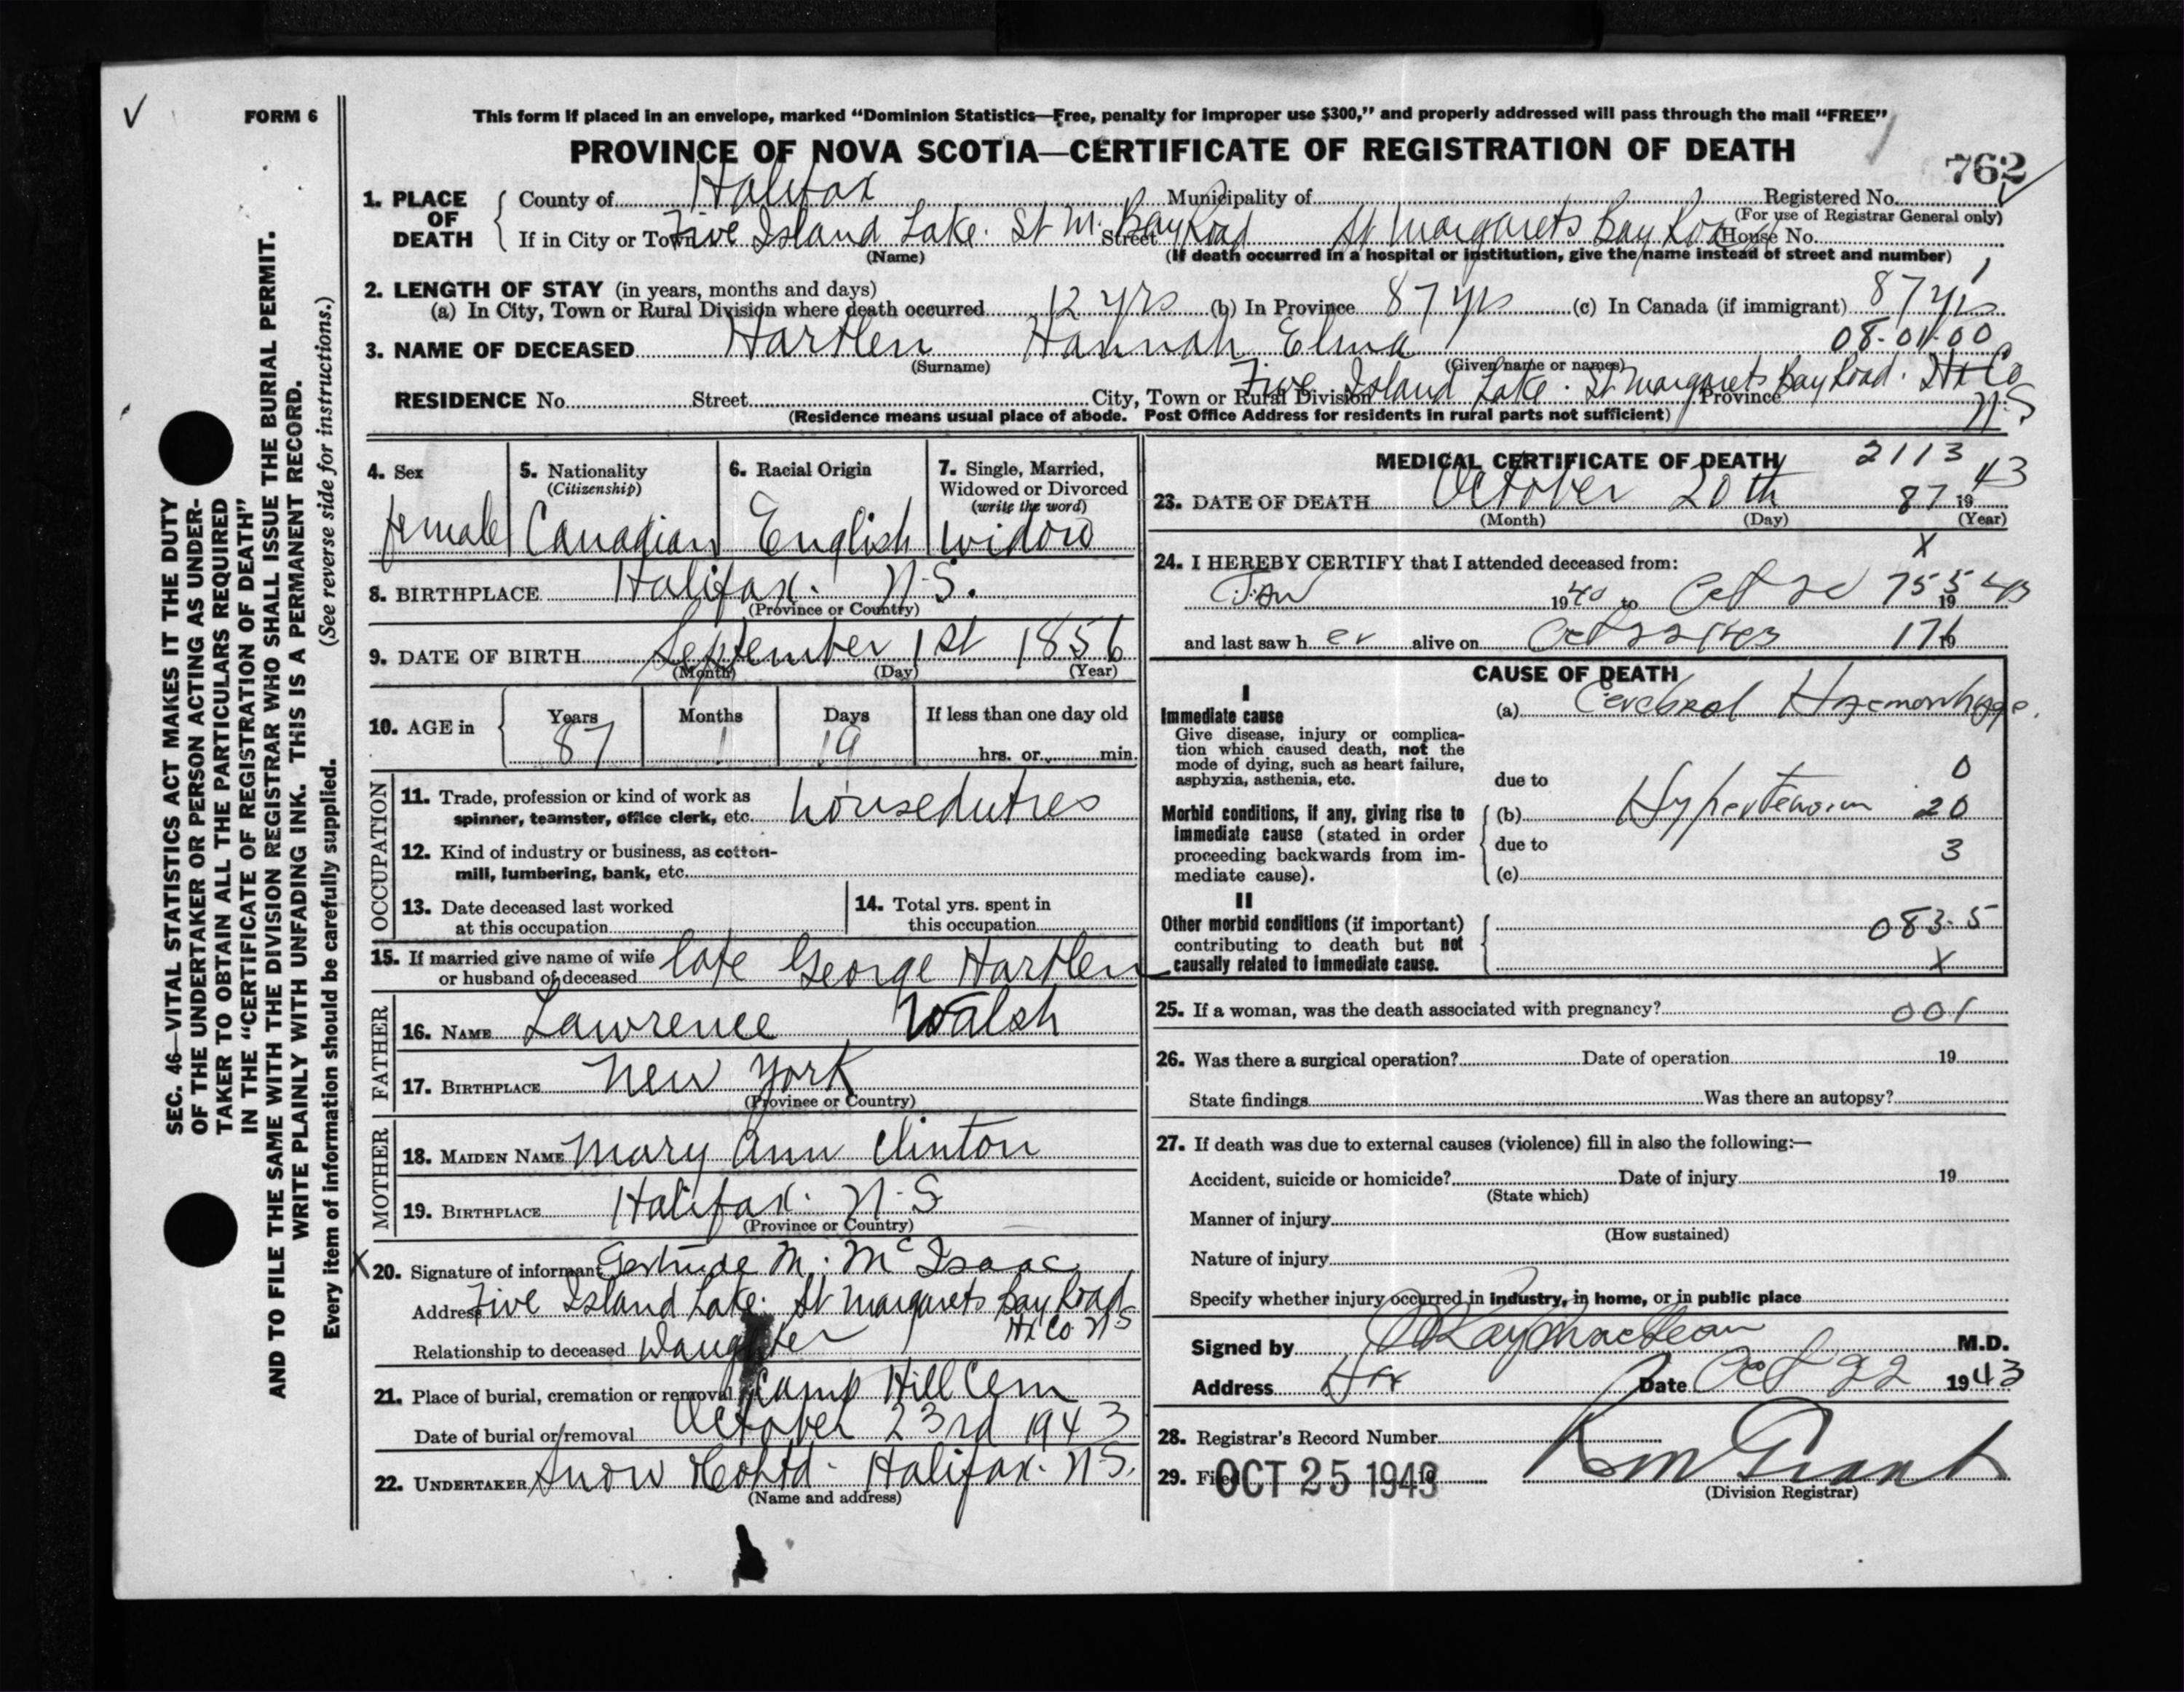 FORM 6
This form if placed in an envelope, marked “Dominion Statistics—Free, penalty for improper use $300,” and properly addressed will pass through the mail “FREE”
PROVINCE OF NOVA SCOTIA—CERTIFICATE OF REGISTRATION OF DEATH
762
1. PLACE OF DEATH
County of Halifax Municipality of Registered No.
(For use of Registrar General only)
If in City or Town Five Island Lake. St M. Bay Road Street St Margarets Bay Road House No.
(Name) (If death occurred in a hospital or institution, give the name instead of street and number)
2. LENGTH OF STAY (in years, months and days)
(a) In City, Town or Rural Division where death occurred 12 yrs (b) In Province 87 yrs (c) In Canada (if immigrant) 87 yrs
08-01-00
3. NAME OF DECEASED Hartlen Hannah Elma
(Surname) (Given name or names)
RESIDENCE No. Street City, Town or Rural Division Five Island Lake. St Margarets Bay Road. Hx Co Province N.S
(Residence means usual place of abode. Post Office Address for residents in rural parts not sufficient)
4. Sex female
5. Nationality (Citizenship) Canadian
6. Racial Origin English
7. Single, Married, Widowed or Divorced (write the word) widow
8. BIRTHPLACE Halifax. N.S.
(Province or Country)
9. DATE OF BIRTH September 1st 1856
(Month) (Day) (Year)
10. AGE in Years 87 Months 1 Days 19 If less than one day old hrs. or min.
OCCUPATION
11. Trade, profession or kind of work as spinner, teamster, office clerk, etc. houseduties
12. Kind of industry or business, as cotton-mill, lumbering, bank, etc.
13. Date deceased last worked at this occupation
14. Total yrs. spent in this occupation
15. If married give name of wife or husband of deceased late George Hartlen
FATHER
16. NAME Lawrence Walsh
17. BIRTHPLACE New York
(Province or Country)
MOTHER
18. MAIDEN NAME Mary Ann Clinton
19. BIRTHPLACE Halifax. N.S
(Province or Country)
X 20. Signature of informant Gertrude M. McIsaac
Address Five Island Lake. St Margarets Bay Road
Hx Co N S
Relationship to deceased Daughter
21. Place of burial, cremation or removal Camp Hill Cem
Date of burial or removal October 23rd 1943
22. UNDERTAKER Snow & Co Ltd. Halifax. N.S.
(Name and address)
MEDICAL CERTIFICATE OF DEATH 2113
23. DATE OF DEATH October 20th 87 19 43
(Month) (Day) (Year)
X
24. I HEREBY CERTIFY that I attended deceased from:
Jan 1940 to Oct 20 755 19 43
and last saw her alive on 176 19
CAUSE OF DEATH
I
Immediate cause
Give disease, injury or complication which caused death, not the mode of dying, such as heart failure, asphyxia, asthenia, etc.
(a) Cerebral Haemorrhage.
due to 0
Morbid conditions, if any, giving rise to immediate cause (stated in order proceeding backwards from immediate cause).
(b) Hypertension 20
due to 3
(c)
II
Other morbid conditions (if important) contributing to death but not causally related to immediate cause.
083.5
X
25. If a woman, was the death associated with pregnancy? 001
26. Was there a surgical operation? Date of operation 19
State findings Was there an autopsy?
27. If death was due to external causes (violence) fill in also the following:—
Accident, suicide or homicide? Date of injury 19
(State which)
Manner of injury
(How sustained)
Nature of injury
Specify whether injury occurred in industry, in home, or in public place
Signed by MacLean M.D.
Address Hfx Date Oct 22 1943
28. Registrar's Record Number
29. Filed OCT 25 1943 Grant
(Division Registrar)
SEC. 46—VITAL STATISTICS ACT MAKES IT THE DUTY
OF THE UNDERTAKER OR PERSON ACTING AS UNDER-
TAKER TO OBTAIN ALL THE PARTICULARS REQUIRED
IN THE “CERTIFICATE OF REGISTRATION OF DEATH”
AND TO FILE THE SAME WITH THE DIVISION REGISTRAR WHO SHALL ISSUE THE BURIAL PERMIT.
WRITE PLAINLY WITH UNFADING INK. THIS IS A PERMANENT RECORD.
Every item of information should be carefully supplied. (See reverse side for instructions.)